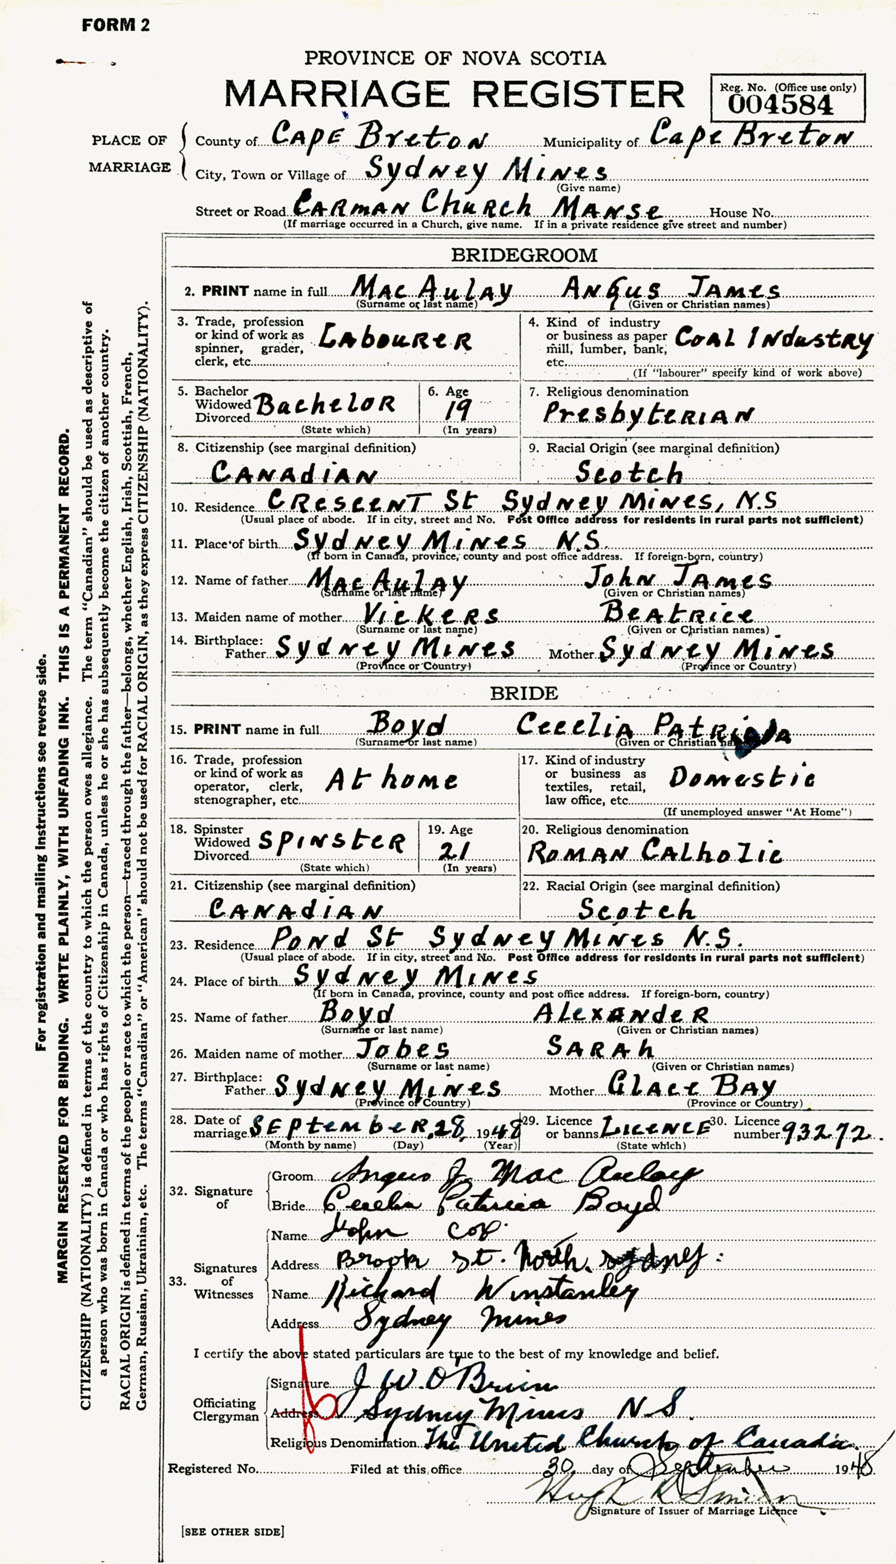 FORM 2
PROVINCE OF NOVA SCOTIA
MARRIAGE REGISTER
Reg. No. (Office use only)
004584
PLACE OF MARRIAGE
County of CAPE BRETON Municipality of Cape BRETON
City, Town or Village of Sydney MINES
(Give name)
Street or Road CARMAN CHURCH MANSE House No.
(If marriage occurred in a Church, give name. If in a private residence give street and number)
BRIDEGROOM
2. PRINT name in full MacAulay Angus James
(Surname or last name) (Given or Christian names)
3. Trade, profession or kind of work as spinner, grader, clerk, etc. Labourer
4. Kind of industry or business as paper mill, lumber, bank, etc. Coal Industry
(If "labourer" specify kind of work above)
5. Bachelor Widowed Divorced Bachelor
(State which)
6. Age 19
(In years)
7. Religious denomination
Presbyterian
8. Citizenship (see marginal definition)
CANADIAN
9. Racial Origin (see marginal definition)
Scotch
10. Residence CRESCENT St Sydney Mines, N.S
(Usual place of abode. If in city, street and No. Post Office address for residents in rural parts not sufficient)
11. Place of birth Sydney Mines N.S.
(If born in Canada, province, county and post office address. If foreign-born, country)
12. Name of father MacAulay John James
(Surname or last name) (Given or Christian names)
13. Maiden name of mother Vickers Beatrice
(Surname or last name) (Given or Christian names)
14. Birthplace: Father Sydney Mines Mother Sydney Mines
(Province or Country) (Province or Country)
BRIDE
15. PRINT name in full Boyd Cecelia
(Surname or last name) (Given or Christian names)
16. Trade, profession or kind of work as operator, clerk, stenographer, etc. At home
17. Kind of industry or business as textiles, retail, law office, etc. Domestic
(If unemployed answer "At Home")
18. Spinster Widowed Divorced SPINSTER
(State which)
19. Age 21
(In years)
20. Religious denomination
ROMAN CALholic
21. Citizenship (see marginal definition)
CANADIAN
22. Racial Origin (see marginal definition)
Scotch
23. Residence Pond St Sydney Mines N.S.
(Usual place of abode. If in city, street and No. Post Office address for residents in rural parts not sufficient)
24. Place of birth Sydney Mines
(If born in Canada, province, county and post office address. If foreign-born, country)
25. Name of father Boyd Alexander
(Surname or last name) (Given or Christian names)
26. Maiden name of mother Jobes SARAh
(Surname or last name) (Given or Christian names)
27. Birthplace: Father Sydney Mines Mother Glace Bay
(Province or Country) (Province or Country)
28. Date of marriage September 28, 1948
(Month by name) (Day) (Year)
29. Licence or banns Licence
(State which)
30. Licence number 93272
32. Signature of
Groom Angus J. MacAulay
Bride Cecelia Patricia Boyd
33. Signatures of Witnesses
Name John
Address Brook St. North Sydney:
Name Richard Winstanley
Address Sydney Mines
I certify the above stated particulars are true to the best of my knowledge and belief.
Officiating Clergyman
Signature J W. O'Brien
Address Sydney Mines N.S.
Religious Denomination The United Church of Canada.
Registered No. Filed at this office 30 day of September 1948
Signature of Issuer of Marriage Licence
[SEE OTHER SIDE]
For registration and mailing instructions see reverse side.
MARGIN RESERVED FOR BINDING. WRITE PLAINLY, WITH UNFADING INK. THIS IS A PERMANENT RECORD.
CITIZENSHIP (NATIONALITY) is defined in terms of the country to which the person owes allegiance. The term "Canadian" should be used as descriptive of
a person who was born in Canada or who has rights of Citizenship in Canada, unless he or she has subsequently become the citizen of another country.
RACIAL ORIGIN is defined in terms of the people or race to which the person—traced through the father—belongs, whether English, Irish, Scottish, French,
German, Russian, Ukrainian, etc. The terms "Canadian" or "American" should not be used for RACIAL ORIGIN, as they express CITIZENSHIP (NATIONALITY).